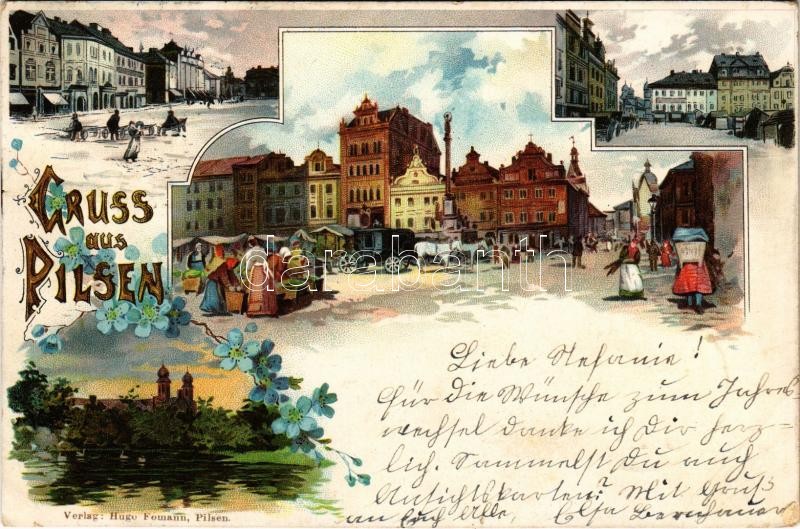 GRUSS
aus
PILSEN
darabanth
Liebe Stefanie!
Für die Wünsche zum Jahres
wechsel danke ich Dir herz-
lich. Sammelst Du auch
Ansichtskarten? Mit Gruß
an Euch Alle, Elsa
Verlag: Hugo Fomann, Pilsen.